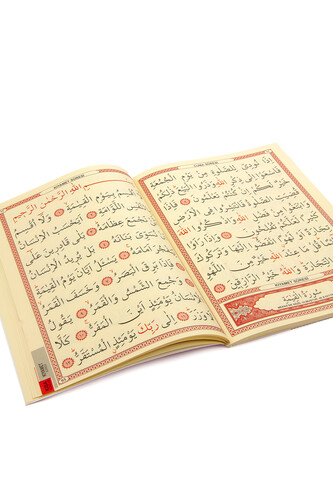 CUMA SÛRESİ
إِذَا نُودِىَ لِلصَّلٰوةِ مِنْ يَوْمِ الْجُمُعَةِ
فَاسْعَوْا اِلٰى ذِكْرِ اللّٰهِ وَذَرُوا الْبَيْعَ ذٰلِكُمْ
خَيْرٌ لَكُمْ اِنْ كُنْتُمْ تَعْلَمُونَ فَاِذَا قُضِيَتِ
الصَّلٰوةُ فَانْتَشِرُوا فِى الْاَرْضِ
وَابْتَغُوا مِنْ فَضْلِ اللّٰهِ وَاذْكُرُوا اللّٰهَ
كَثِيرًا لَعَلَّكُمْ تُفْلِحُونَ وَاِذَا رَاَوْا
تِجَارَةً اَوْ لَهْوًا انْفَضُّوا اِلَيْهَا وَتَرَكُوكَ
قَائِمًا قُلْ مَا عِنْدَ اللّٰهِ خَيْرٌ مِنَ اللَّهْوِ
وَمِنَ التِّجَارَةِ وَاللّٰهُ خَيْرُ الرَّازِقِينَ
KIYAMET SÛRESİ
سُورَةُ الْقِيٰمَةِ
KIYAMET SÛRESİ
بِسْمِ اللّٰهِ الرَّحْمٰنِ الرَّحِيمِ
لَا اُقْسِمُ بِيَوْمِ الْقِيٰمَةِ وَلَا اُقْسِمُ
بِالنَّفْسِ اللَّوَّامَةِ اَيَحْسَبُ الْاِنْسَانُ
اَلَّنْ نَجْمَعَ عِظَامَهُ بَلٰى قَادِرِينَ عَلٰى
اَنْ نُسَوِّىَ بَنَانَهُ بَلْ يُرِيدُ الْاِنْسَانُ
لِيَفْجُرَ اَمَامَهُ يَسْئَلُ اَيَّانَ يَوْمُ الْقِيٰمَةِ
فَاِذَا بَرِقَ الْبَصَرُ وَخَسَفَ الْقَمَرُ
وَجُمِعَ الشَّمْسُ وَالْقَمَرُ يَقُولُ
الْاِنْسَانُ يَوْمَئِذٍ اَيْنَ الْمَفَرُّ كَلَّا
لَا وَزَرَ اِلٰى رَبِّكَ يَوْمَئِذٍ الْمُسْتَقَرُّ